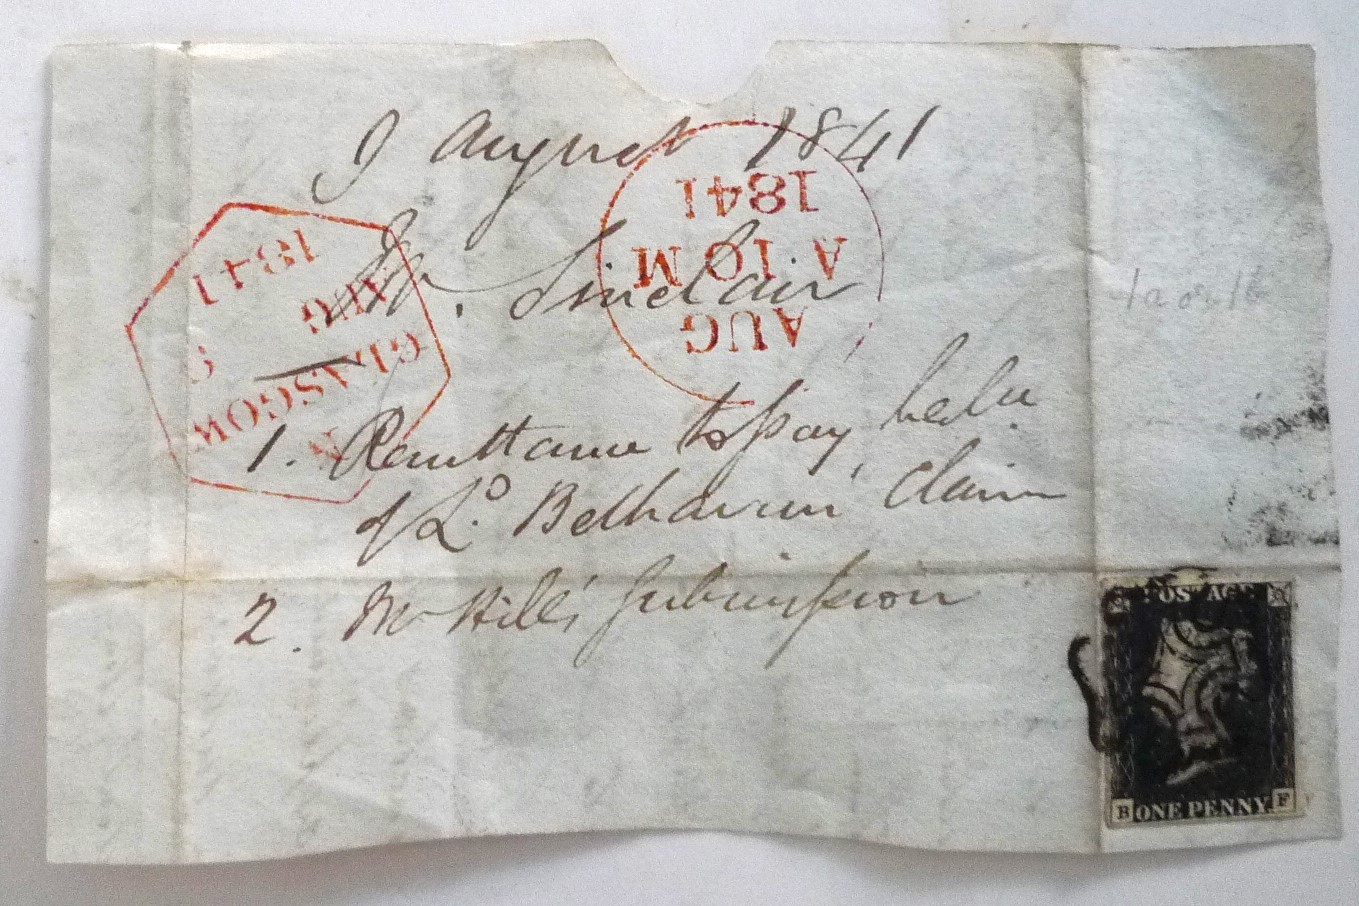 9 August 1841
Mr. Sinclair
1. Remittance to pay
of Lo. Belhaven's Claim
2. Mr Hill's Submission
1841
A 10 M
AUG
1841
AUG
9
GLASGOW
POSTAGE
B ONE PENNY F